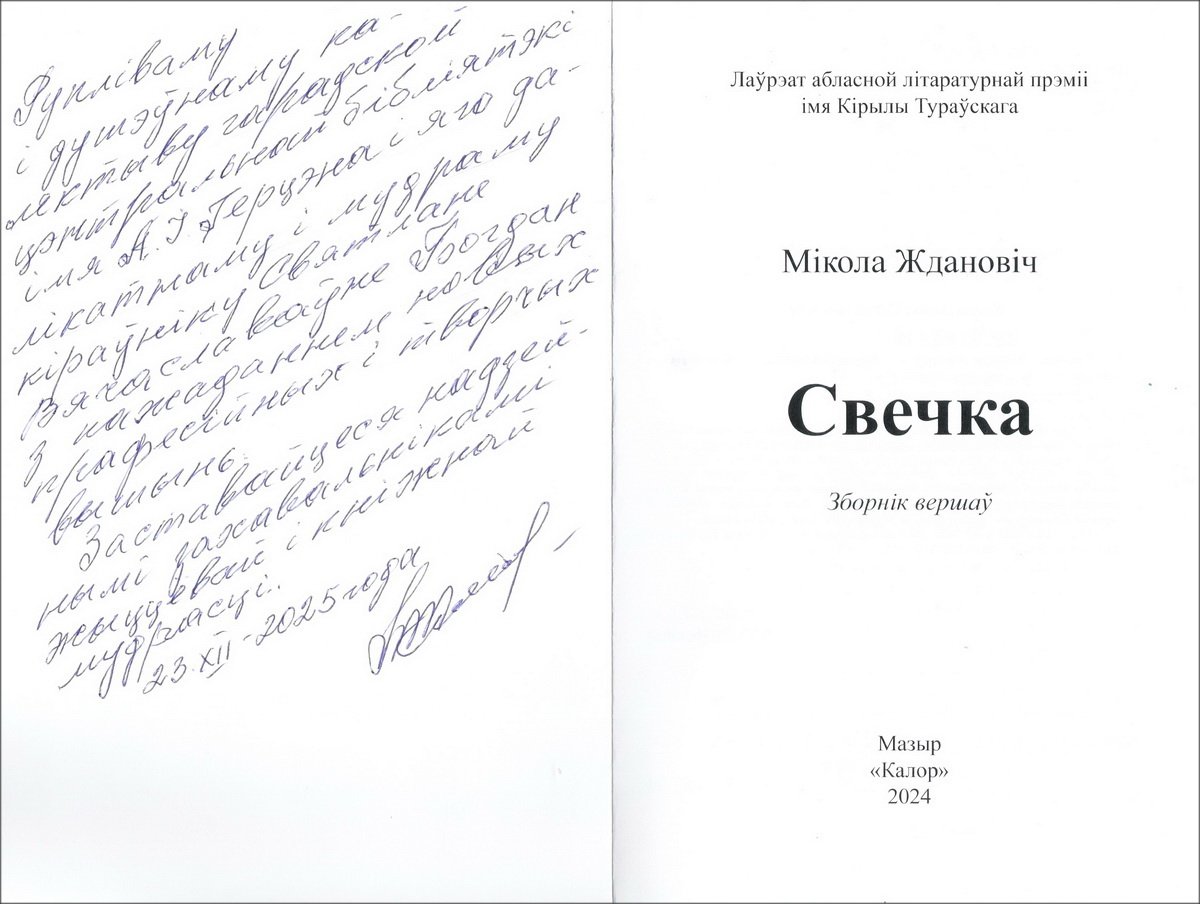 Руплівому
і душэўнаму ка-
лектыву гарадской
цэнтральнай бібліятэкі
імя А. І. Герцэна і яго да-
лікатнаму і мудраму
кіраўніку Святлане
Вячаславаўне Богдан
З пажаданнем новых
прафесійных і творчых
вышынь.
Заставайцеся надзей-
нымі захавальнікамі
жыццёвай і кніжнай
мудрасці.
23.XII-2025 года
Лаўрэат абласной літаратурнай прэміі
імя Кірылы Тураўскага
Мікола Ждановіч
Свечка
Зборнік вершаў
Мазыр
«Калор»
2024